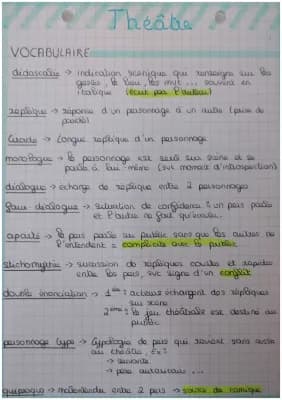 Théâtre
VOCABULAIRE
didascalie → indication scénique qui renseigne sur les
gestes, le lieu, les mvt ... souvent en
italique (écrit par l'auteur)
réplique → réponse d'un personnage à un autre (prise de
parole)
tirade → longue réplique d'un personnage
monologue → le personnage est seul sur scène et se
parle à lui-même (svt moment d'introspection)
dialogue → échange de réplique entre 2 personnages
faux dialogue → situation de confidence : un pers parle
et l'autre ne fait qu'écouter.
aparté → le pers parle au public sans que les autres ne
l'entendent = complicité avec le public
stichomythie → succession de répliques courtes et rapides
entre les pers, svt signe d'un conflit
double énonciation → 1ère : acteurs échangent des répliques
sur scène
2ème : le jeu théâtrale est destiné au
public
personnage type → typologie de pers qui revient sans cesse
au théâtre. Ex :
→ servante
→ père autoritaire ...
quiproquo → malentendu entre 2 pers → source de comique